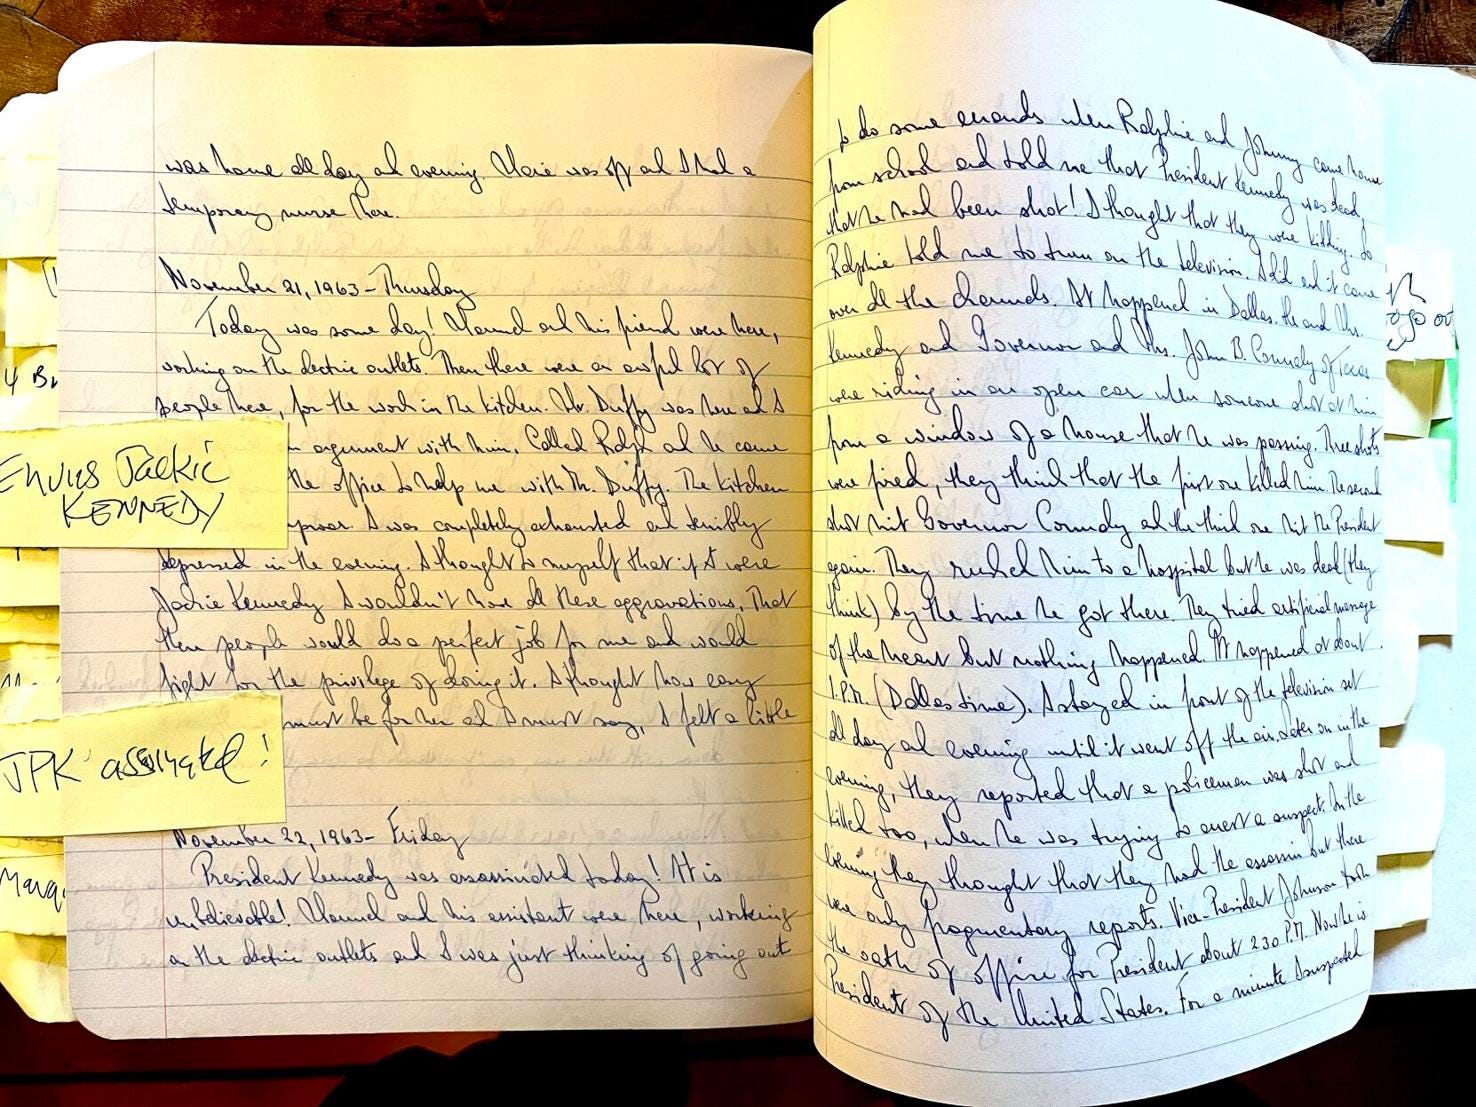 was home all day and evening. Marie was off and I had a
temporary nurse here.
November 21, 1963 - Thursday
Today was some day! Manuel and his friend were here,
working on the electric outlets. Then there were an awful lot of
people here, for the work in the kitchen. Mr. Duffy was here and I
an argument with him. Called Ralph and he came
the office to help me with Mr. Duffy. The kitchen
uproar. I was completely exhausted and terribly
depressed in the evening. I thought to myself that if I were
Jackie Kennedy I wouldn't have all these aggravations. That
these people would do a perfect job for me and would
fight for the privilege of doing it. I thought how easy
must be for her and I must say, I felt a little
November 22, 1963 - Friday
President Kennedy was assassinated today! It is
unbelievable! Manuel and his assistant were here, working
on the electric outlets and I was just thinking of going out
ENVIES JACKIE
KENNEDY
JPK
4
Marq
to do some errands when Ralphie and Johnny came home
from school and told me that President Kennedy was dead,
that he had been shot! I thought that they were kidding. So
Ralphie told me to turn on the television. I did and it came
over all the channels. It happened in Dallas. He and Mrs.
Kennedy and Governor and Mrs. John B. Connaly of Texas
were riding in an open car when someone shot at him
from a window of a house that he was passing. Three shots
were fired, they think that the first one killed him. The second
shot hit Governor Connaly and the third one hit the President
again. They rushed him to a hospital but he was dead (they
think) by the time he got there. They tried artificial massage
of the heart but nothing happened. It happened at about
1. P.M. (Dallas time). I stayed in front of the television set
all day and evening until it went off the air. Later on in the
evening, they reported that a policeman was shot and
killed too, when he was trying to arrest a suspect. In the
evening they thought that they had the assassin but there
were only fragmentary reports. Vice-President Johnson took
the oath of office for President about 2.30 P.M. Now he is
President of the United States. For a minute I suspected
to go out